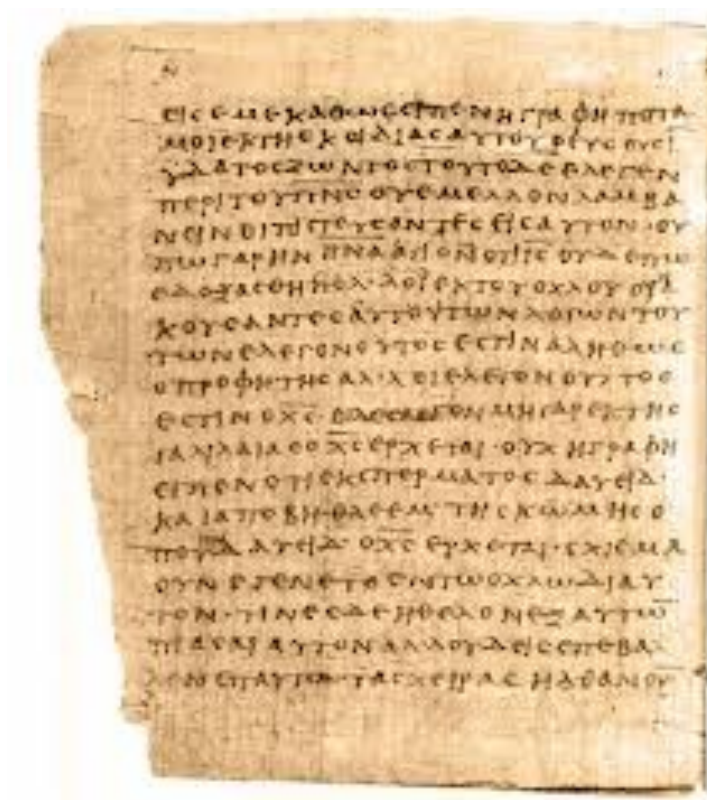 ΕΙϹΕΜΕΚΑΘΩϹΕΙΠΕΝΗΓΡΑΦΗΠΟΤΑ
ΜΟΙΕΚΤΗϹΚΟΙΛΙΑϹΑΥΤΟΥΡΕΥϹΟΥϹΙ
ΥΔΑΤΟϹΖΩΝΤΟϹΤΟΥΤΟΔΕΕΛΕΓΕΝ
ΠΕΡΙΤΟΥΠΝϹΟΥΕΜΕΛΛΟΝΛΑΜΒΑ
ΝΕΙΝΟΙΠΙϹΤΕΥϹΟΝΤΕϹΕΙϹΑΥΤΟΝ·ΟΥ
ΠΩΓΑΡΗΝΠΝΑΑΓΙΟΝΟΤΙΙϹΟΥΔΕΠΩ
ΕΔΟΞΑϹΘΗΠΟΛΛΟΙΕΚΤΟΥΟΧΛΟΥΟΙΑ
ΚΟΥϹΑΝΤΕϹΑΥΤΟΥΤΩΝΛΟΓΩΝΤΟΥ
ΤΩΝΕΛΕΓΟΝΟΥΤΟϹΕϹΤΙΝΑΛΗΘΩϹ
ΟΠΡΟΦΗΤΗϹΑΛΛΟΙΕΛΕΓΟΝΟΥΤΟϹ
ΕϹΤΙΝΟΧϹ·ΜΗΓΑΡΕΚΤΗϹ
ΓΑΛΙΛΑΙΑϹΟΧϹΕΡΧΕΤΑΙ·ΟΥΧΗΓΡΑΦΗ
ΕΙΠΕΝΟΤΙΕΚϹΠΕΡΜΑΤΟϹΔΑΥΕΙΔ·
ΚΑΙΑΠΟΒΗΘΛΕΕΜΤΗϹΚΩΜΗϹΟ
ΠΟΥΔΑΥΕΙΔ·ΟΧϹΕΡΧΕΤΑΙ·ϹΧΙϹΜΑ
ΟΥΝΕΓΕΝΕΤΟΕΝΤΩΟΧΛΩΔΙΑΥ
ΤΟΝ·ΤΙΝΕϹΔΕΗΘΕΛΟΝΕΞΑΥΤΩ
ΠΙΑϹΑΙΑΥΤΟΝΑΛΛΟΥΔΕΙϹΕΠΕΒΑ
ΛΕΝΕΠΑΥΤΟΝΤΑϹΧΕΙΡΑϹΗΛΘΑΝΟΥ